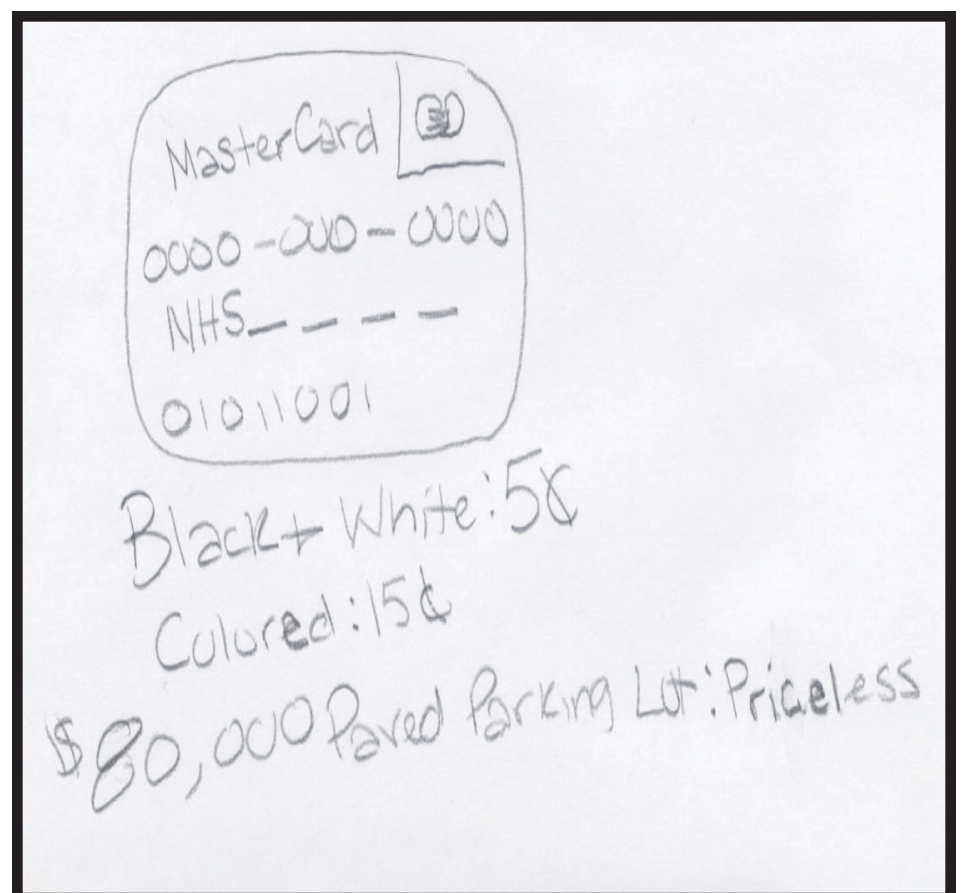 MasterCard
0000-000-0000
NHS_ _ _ _
01011001
Black + White: 5¢
Colored: 15¢
$80,000 Paved Parking Lot: Priceless